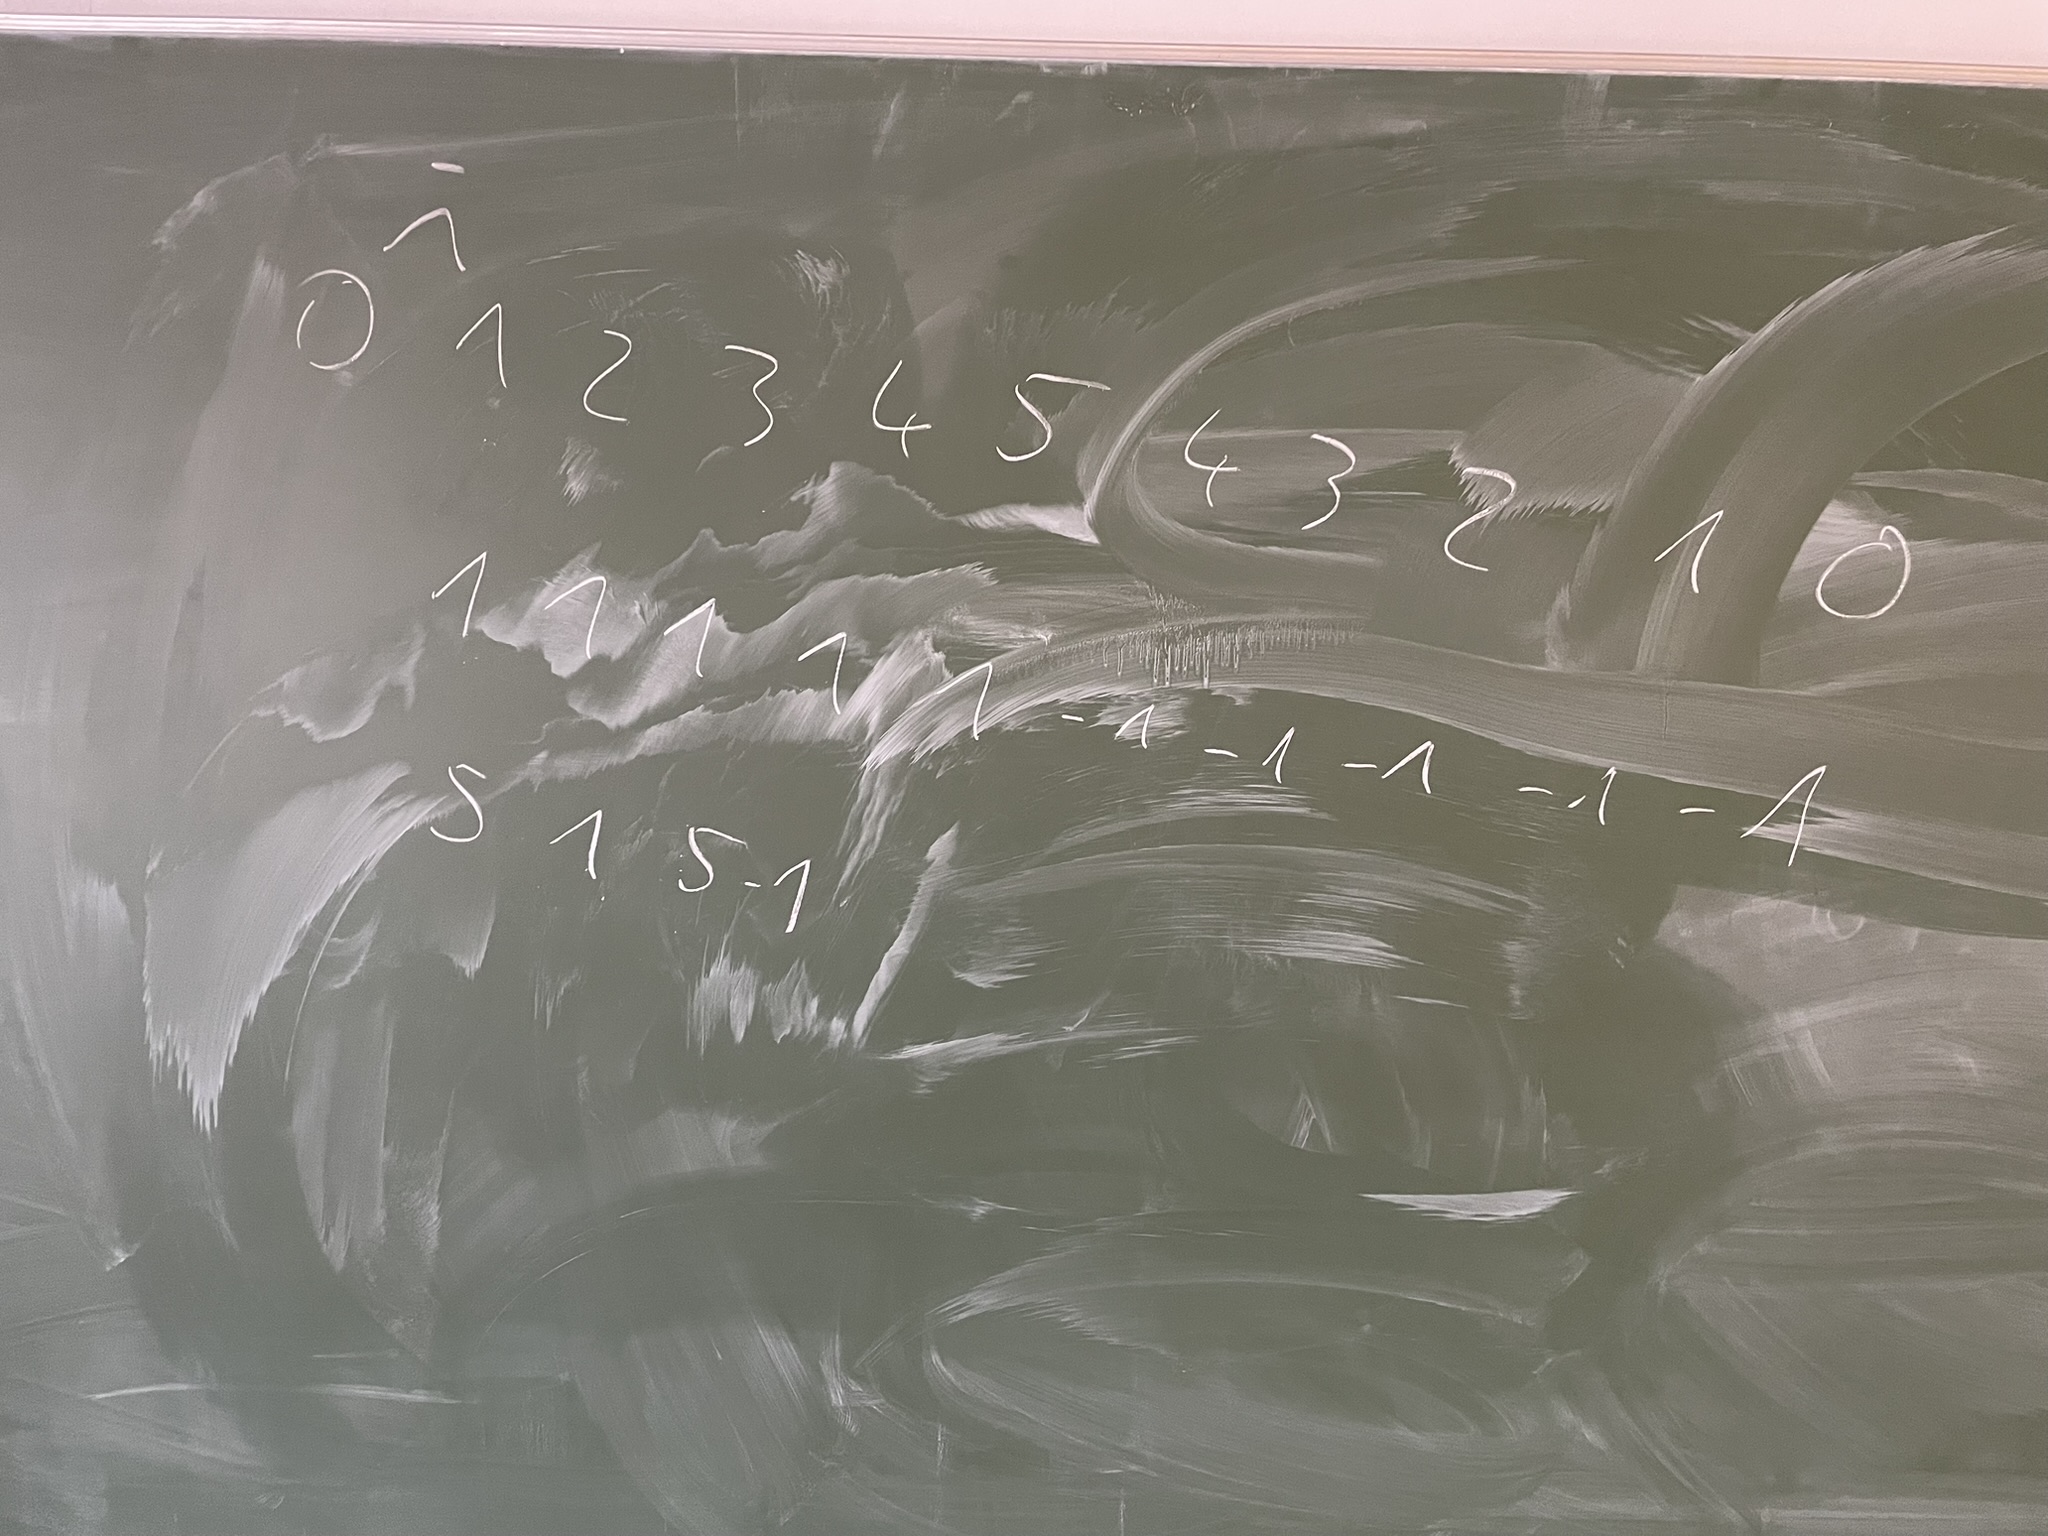 -
1
0 1 2 3 4 5 4 3 2 1 0
1 1 1 1 1 -1 -1 -1 -1 -1
5 1 5 -1